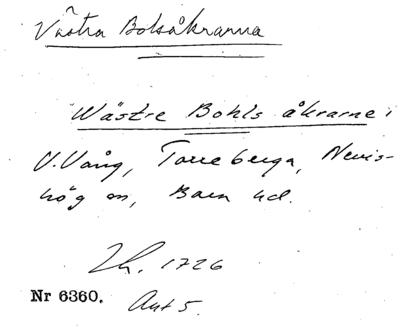 Västra Bolsåkrarna
Wästre Bohls åkrarne,
V. Vång, Torreberga, Nevis-
hög sn, Bara hd.
Lh. 1726
Nr 6360. Akt 5.